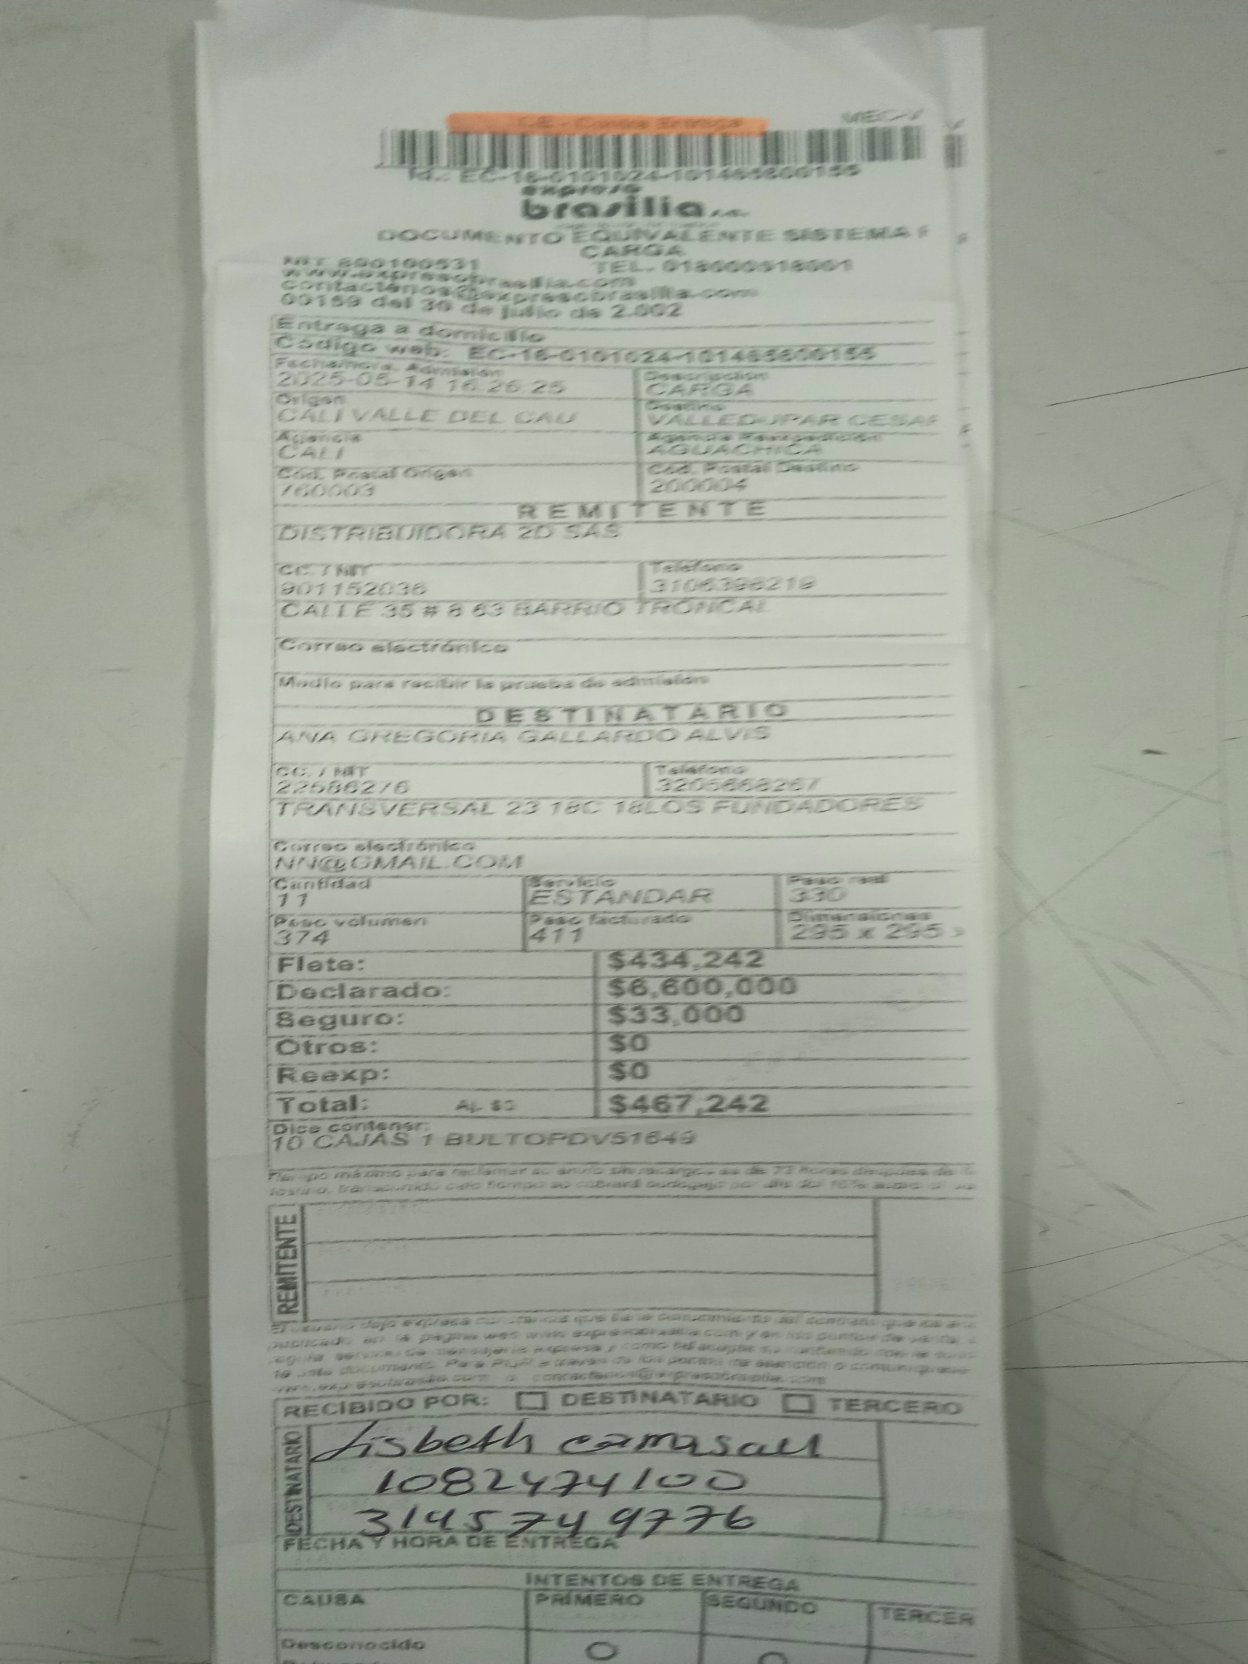 CE - Contra Entrega
MEC-V
Id.: EC-16-0101024-101465600155
expreso
brasilia s.a.
DOCUMENTO EQUIVALENTE SISTEMA P
CARGA
NIT 890100531 TEL. 018000518001
www.expresobrasilia.com
contactenos@expresobrasilia.com
00159 del 30 de julio de 2.002
Entrega a domicilio
Código web: EC-16-0101024-101465600155
Fecha/hora Admisión Descripción
2025-05-14 16:26:25 CARGA
Origen Destino
CALI VALLE DEL CAU VALLEDUPAR CESAR
Agencia Agencia Reexpedición
CALI AGUACHICA
Cód. Postal Origen Cód. Postal Destino
760003 200004
REMITENTE
DISTRIBUIDORA 2D SAS
CC. / NIT Teléfono
901152036 3106396219
CALLE 35 # 8 63 BARRIO TRONCAL
Correo electrónico
Medio para recibir la prueba de admisión
DESTINATARIO
ANA GREGORIA GALLARDO ALVIS
CC. / NIT Teléfono
22586276 3205668267
TRANSVERSAL 23 18C 18LOS FUNDADORES
Correo electrónico
NN@GMAIL.COM
Cantidad Servicio Peso real
11 ESTANDAR 330
Peso volumen Peso facturado Dimensiones
374 411 295 x 295 x
Flete: $434,242
Declarado: $6,600,000
Seguro: $33,000
Otros: $0
Reexp: $0
Total: $467,242
Dice contener:
10 CAJAS 1 BULTOPDV51649
Tiempo máximo para reclamar su envío sin recargos es de 72 horas después de
REMITENTE
RECIBIDO POR: DESTINATARIO TERCERO
DESTINATARIO
Lisbeth camasau
1082474100
3145749776
FECHA Y HORA DE ENTREGA
INTENTOS DE ENTREGA
CAUSA PRIMERO SEGUNDO TERCER
Desconocido